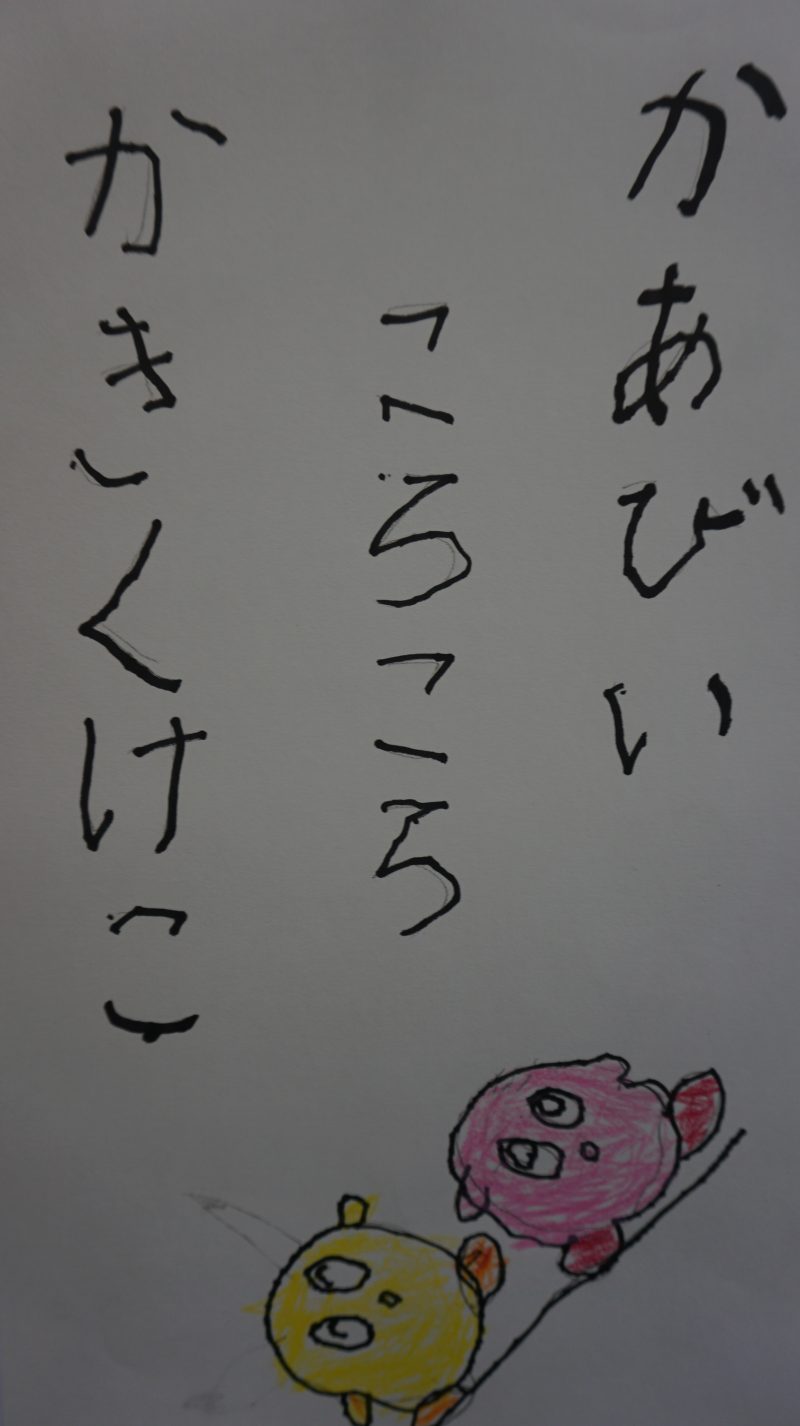 かあびい
ころころ
かきくけこ